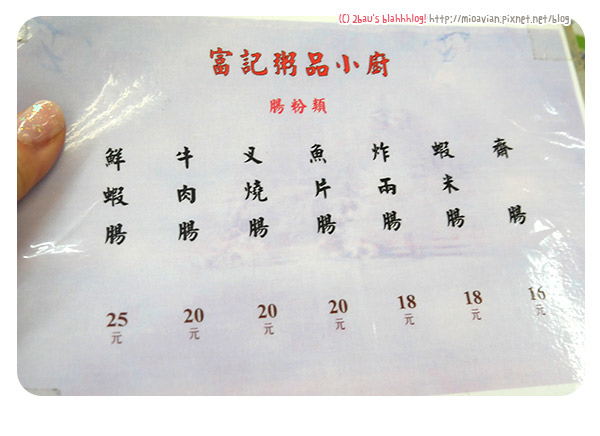 (C) 2bau's blahhhlog! http://mioavian.pixnet.net/blog
富記粥品小廚
腸粉類
鮮蝦腸 25元
牛肉腸 20元
叉燒腸 20元
魚片腸 20元
炸兩腸 18元
蝦米腸 18元
齋腸 16元